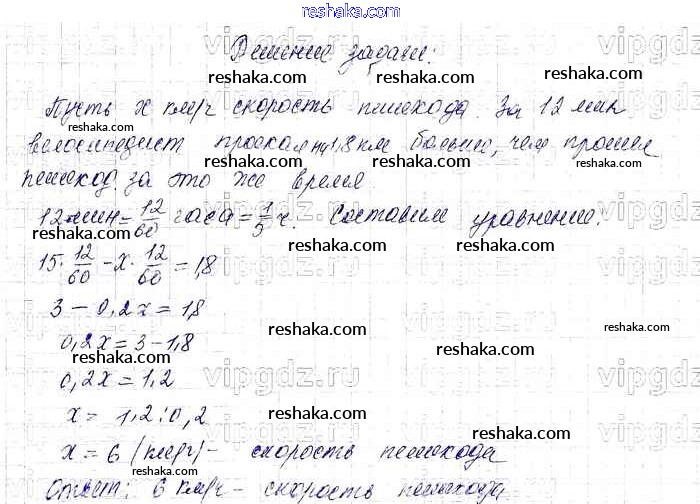 reshaka.com
Решение задачи:
reshaka.com reshaka.com
Пусть x км/ч скорость пешехода. За 12 мин
reshaka.com
велосипедист проехал на 1,8 км больше, чем прошел
reshaka.com reshaka.com
пешеход за это же время.
12 мин = 12/60 часа = 1/5 ч. Составим уравнение:
reshaka.com reshaka.com
15 · 12/60 - x · 12/60 = 1,8
vipgdz.ru vipgdz
3 - 0,2x = 1,8
reshaka.com
0,2x = 3 - 1,8
reshaka.com reshaka.com
0,2x = 1,2
vipgdz.ru vipgdz
x = 1,2 : 0,2
reshaka.com
x = 6 (км/ч) - скорость пешехода
reshaka.com reshaka.com
Ответ: 6 км/ч - скорость пешехода